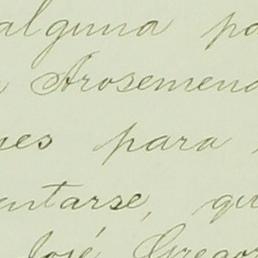 alguna pa
Arosemena
ues para
entarse, qu
José Gregor